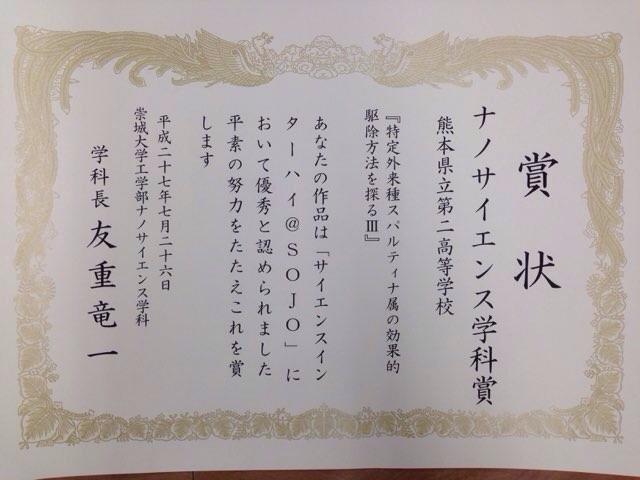 賞状
ナノサイエンス学科賞
熊本県立第二高等学校
『特定外来種スパルティナ属の効果的
駆除方法を探るⅢ』
あなたの作品は「サイエンスイン
ターハイ@SOJO」に
おいて優秀と認められました
平素の努力をたたえこれを賞
します
平成二十七年七月二十六日
崇城大学工学部ナノサイエンス学科
学科長 友重竜一